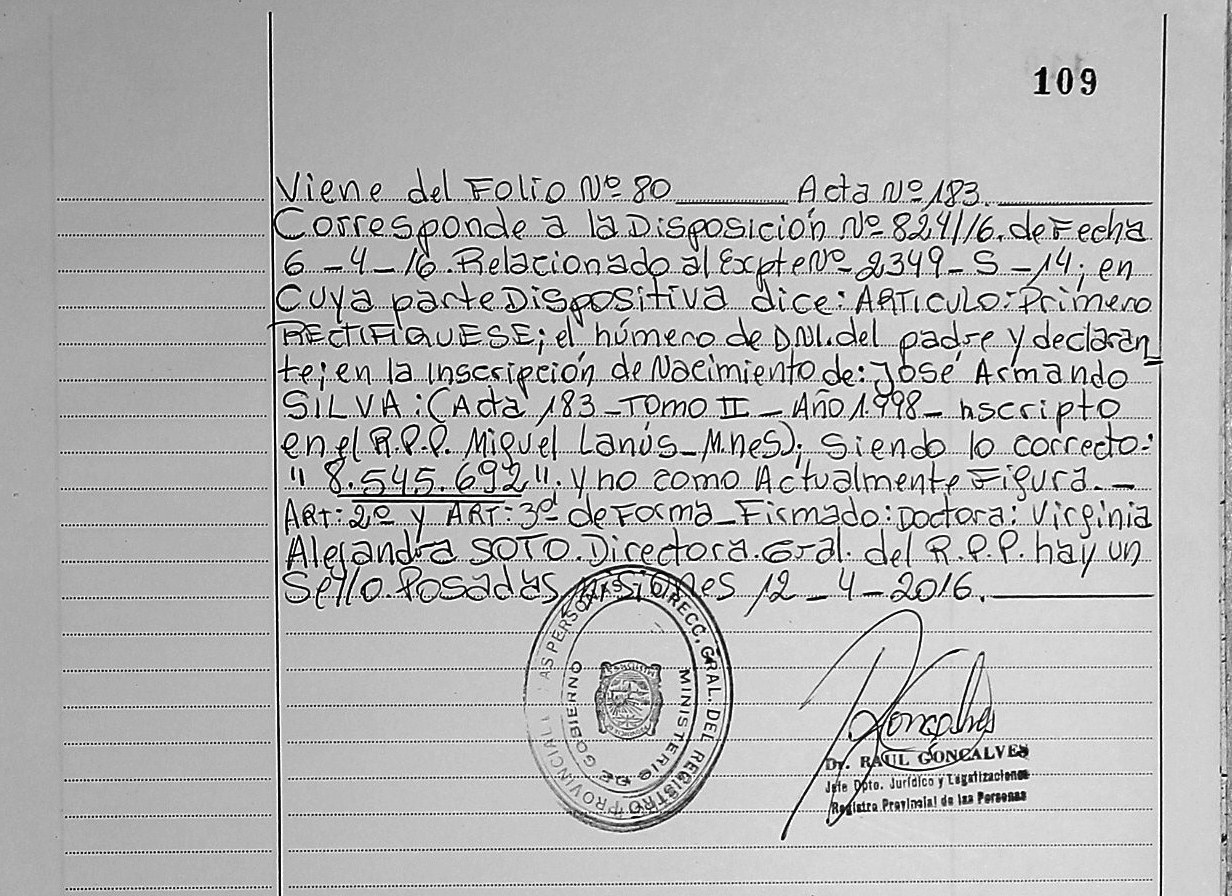 109
Viene del Folio Nº 80 Acta Nº 183.
Corresponde a la Disposición Nº 824/16. de Fecha
6-4-16. Relacionado al Expte Nº 2349-S-14; en
Cuya parte Dispositiva dice: ARTICULO: Primero
RECTIFIQUESE; el número de DNI. del padre y declaran
te; en la inscripción de Nacimiento de: José Armando
SILVA: (Acta 183-TOMO II - Año 1.998- nscripto
en el R.P.P. Miguel Lanús-Mnes); siendo lo correcto:
"8.545.692". y no como Actualmente Figura.-
ART: 2º y ART: 3º de Forma-Firmado: Doctora: Virginia
Alejandra SOTO. Directora. Gral. del R.P.P. hay un
Sello. Posadas, Misiones 12-4-2016.
DIRECC. GRAL. DEL REGISTRO PROVINCIAL DE LAS PERSONAS
MINISTERIO DE GOBIERNO
Dr. RAUL GONCALVES
Jefe Dpto. Jurídico y Legalizaciones
Registro Provincial de las Personas